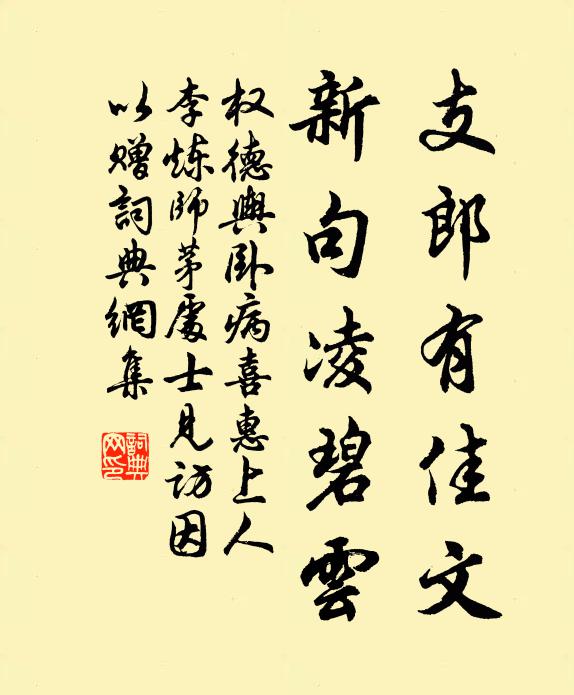 支郎有佳文
新句凌碧雲
权德輿卧病喜惠上人
李炼師茅處士見訪因
以赠詞典網集
詞典网印